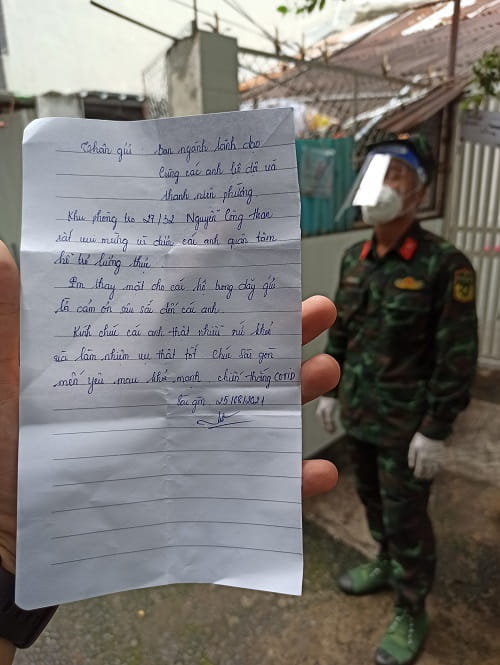 Thân gửi ban ngành lãnh đạo
Cùng các anh bộ đội và
thanh niên phường
Khu phòng trọ 27/32 Nguyễn Công Hoan
rất vui mừng vì được các anh quan tâm
hỗ trợ lương thực
Em thay mặt cho các hộ trong dãy gửi
lời cảm ơn sâu sắc đến các anh.
Kính chúc các anh thật nhiều sức khỏe
và làm nhiệm vụ thật tốt. Chúc Sài gòn
mến yêu mau khỏe mạnh, chiến thắng COVID
Sài gòn, 25/08/2021